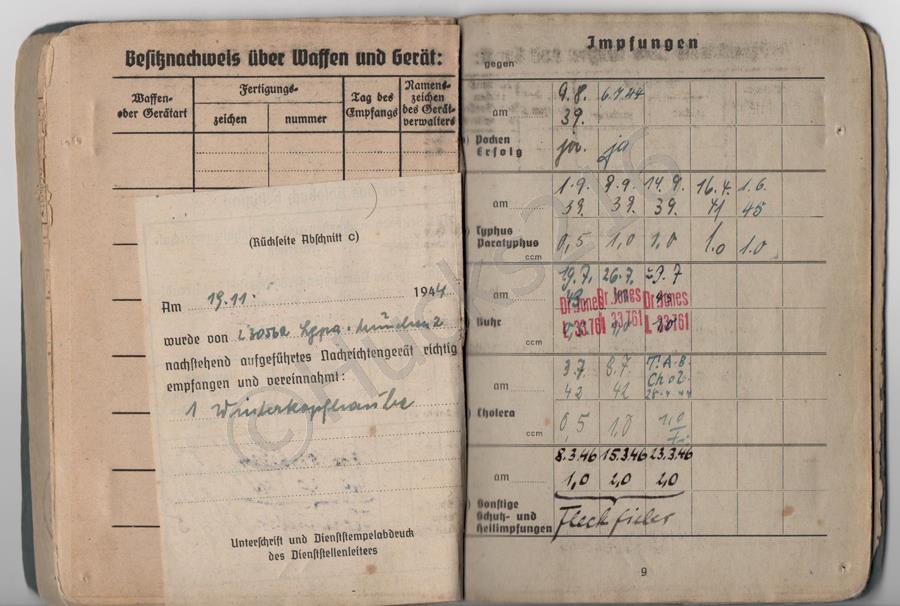 Besitznachweis über Waffen und Gerät:
Waffen-
oder Gerätart
Fertigungs-
zeichen
nummer
Tag des
Empfangs
Namens-
zeichen
des Gerät-
verwalters
(Rückseite Abschnitt c)
Am 19.11. 1944
wurde von L30562 Lgpa. München 2
nachstehend aufgeführtes Nachrichtengerät richtig
empfangen und vereinnahmt:
1 Winterkopfhaube
Unterschrift und Dienststempelabdruck
des Dienststellenleiters
Impfungen
gegen
9.8. 6.7.44
am 39.
Pocken
Erfolg ja
1.9. 8.9. 14.9. 16.4. 1.6.
am 39. 39. 39. 41 45
Typhus
Paratyphus 0,5 1,0 1,0 1.0 1.0
ccm
19.7. 26.7.
am
Dr Jones Dr Jones Dr Jones
L 33.761 33.761 L 33.761
Ruhr
ccm
3.7. 8.7. T.A.B.
am 42 42 Chol.
28.4.44
Cholera 0,5 1,0 1,0
ccm
8.3.46 15.3.46 23.3.46
am 1,0 2,0 2,0
Sonstige
Schutz- und
Heilimpfungen Fleckfieber
9
©Hucks216